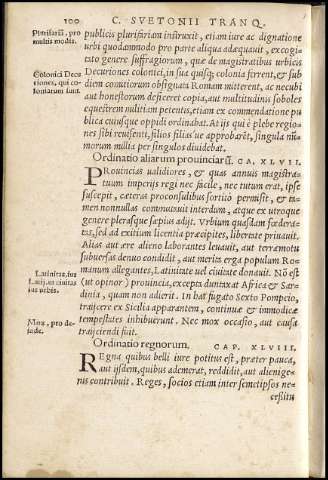 100 C. SVETONII TRANQ.
publicis plurifariàm instruxit, etiam iure ac dignatione
urbi quodammodo pro parte aliqua adæquauit, excogi-
tato genere suffragiorum, quæ de magistratibus urbicis
Decuriones colonici, in sua quisque colonia ferrent, & sub
diem comitiorum obsignata Romam mitterent, ac necubi
aut honestorum deficeret copia, aut multitudinis soboles
equestrem militiam petentis, etiam ex commendatione pu
blica cuiusque oppidi ordinabat. At ijs qui è plebe regio-
nes sibi reuisenti, filios filias'ue approbarēt, singula nū-
morum millia per singulos diuidebat.
Ordinatio aliarum prouinciarū. CA. XLVII.
PRouincias ualidiores, & quas annuis magistra-
tuum imperijs regi nec facile, nec tutum erat, ipse
suscepit, cæteras proconsulibus sortitò permisit, & ta-
men nonnullas commutauit interdum, atque ex utroque
genere plerasque sæpius adijt. Vrbium quasdam fœdera-
tas, sed ad exitium licentia præcipites, libertate priuauit.
Alias aut ære alieno laborantes leuauit, aut terræmotu
subuersas denuò condidit, aut merita erga populum Ro-
manum allegantes, Latinitate uel ciuitate donauit. Nō est
(ut opinor) prouincia, excepta duntaxat Africa & Sar-
dinia, quam non adierit. In has fugato Sexto Pompeio,
traijcere ex Sicilia apparantem, continuæ & immodicæ
tempestates inhibuerunt. Nec mox occasio, aut causa
traijciendi fuit.
Ordinatio regnorum. CAP. XLVIII.
REgna quibus belli iure potitus est, præter pauca,
aut ijsdem, quibus ademerat, reddidit, aut alienige-
nis contribuit. Reges, socios etiam inter semetipsos ne-
cessitu
Plurifariā, pro
multis modis.
Colonici Decu
riones, qui co-
loniarum sunt.
Latinitas, ius
Latij, ut ciuitas
ius urbis.
Mox, pro de-
inde.